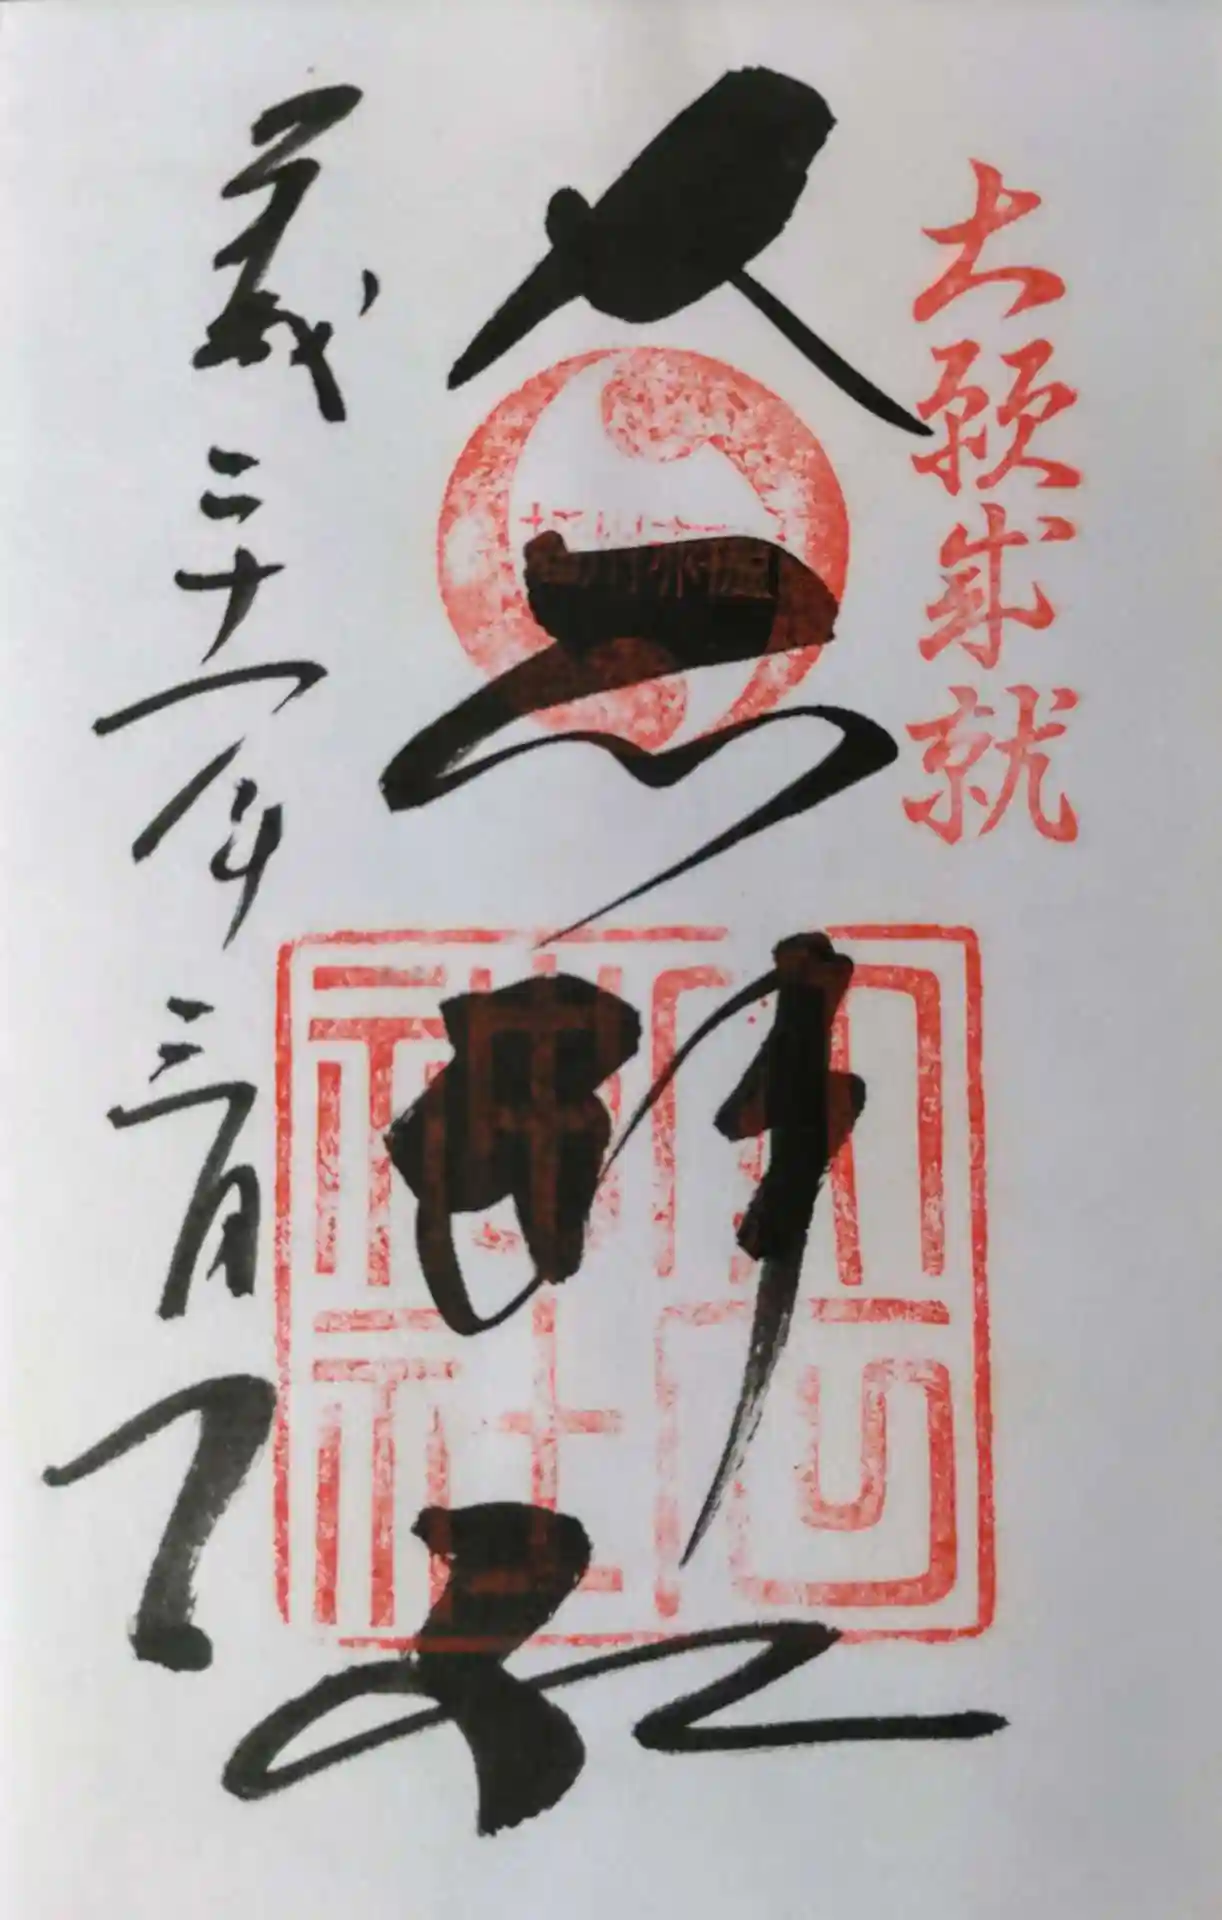 大願成就
大石神社
平成三十一年三月
大石
神社